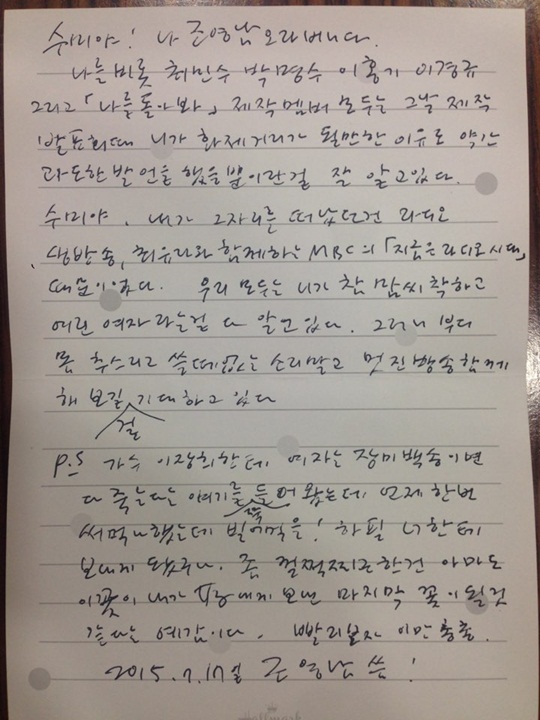 수미야! 나 조영남 오라버니다.
나를 비롯 최민수 박명수 이홍기 이경규
그리고 「나를 돌아봐」 제작멤버 모두는 그날 제작
발표회때 니가 화제거리가 될만한 이유로 약간
과도한 발언을 했을 뿐이란걸 잘 알고있다.
수미야. 내가 그자리를 떠났던건 라디오
생방송, 최유라와 함께하는 MBC의 「지금은 라디오시대」
때문이였다. 우리 모두는 니가 참 맘씨 착하고
여린 여자라는걸 다 알고있다. 그러니 부디
몸 추스리고 쓸떼없는 소리말고 멋진방송 함께
해 보길 기대하고 있다
걸
P.S 가수 이장희한테 여자는 장미백송이면
다 죽는다는 얘기를 들어 왔는데 언제 한번
써먹나했는데 빌어먹을! 하필 너한테
보내게 됐구나. 좀 껄쩍찌근한건 아마도
이꽃이 내가 여자에게 보낸 마지막 꽃이 될것
같다는 예감이다. 빨리보자 이만 총총.
2015.7.17일 조영남 씀!
Hallmark